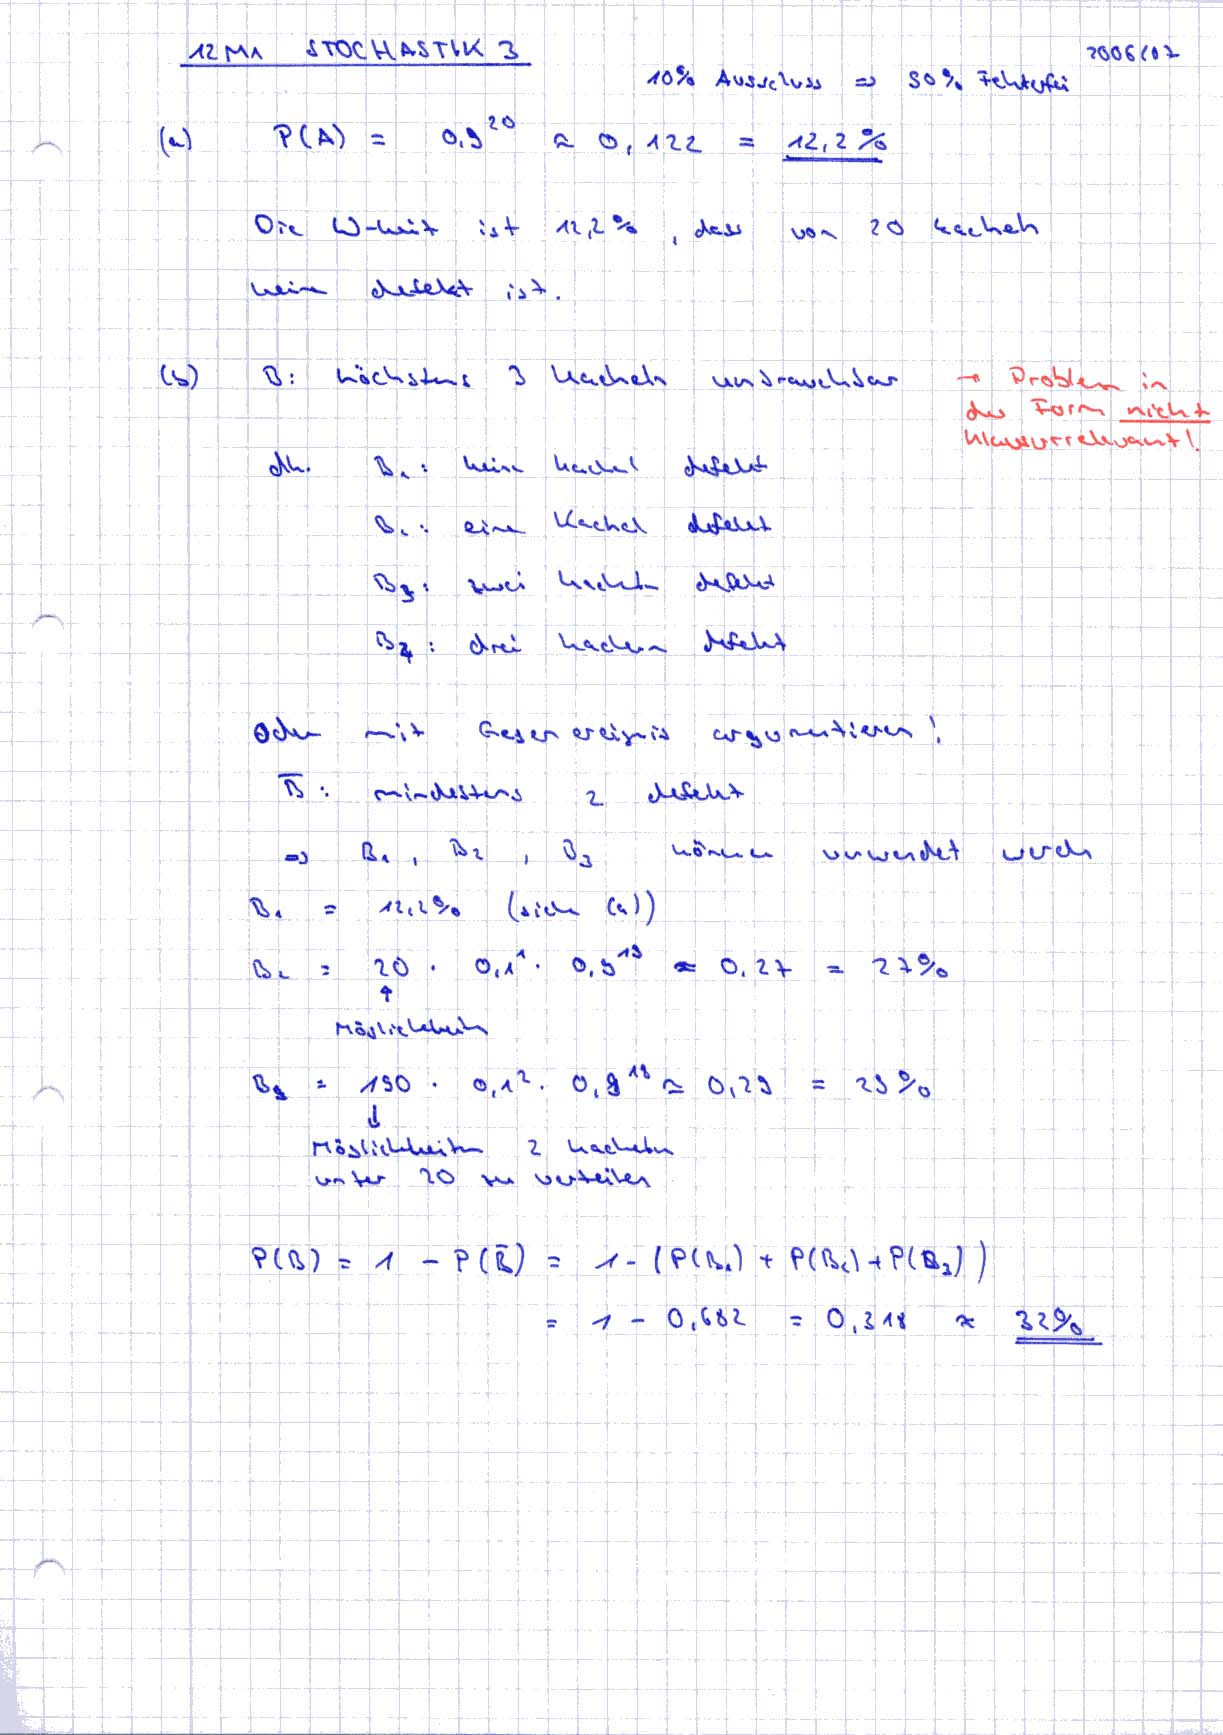 12M1 STOCHASTIK 3
2006/07
10% Ausschuss => 90% Fehlerfrei
(a) P(A) = 0,9^20 ≈ 0,122 = 12,2%
Die W-keit ist 12,2%, dass von 20 Kacheln
keine defekt ist.
(b) B: höchstens 3 Kacheln unbrauchbar → Problem in
der Form nicht
klausurrelevant!
dh. B1: keine Kachel defekt
B2: eine Kachel defekt
B3: zwei Kacheln defekt
B4: drei Kacheln defekt
Oder mit Gegenereignis argumentieren!
B̅: mindestens 2 defekt
=> B1, B2, B3 können verwendet werden
B1 = 12,2% (siehe (a))
B2 = 20 · 0,1^1 · 0,9^19 ≈ 0,27 = 27%
↑
Möglichkeiten
B3 = 190 · 0,1^2 · 0,9^18 ≈ 0,29 = 29%
↓
Möglichkeiten 2 Kacheln
unter 20 zu verteilen
P(B) = 1 - P(B̅) = 1 - (P(B1) + P(B2) + P(B3))
= 1 - 0,682 = 0,318 ≈ 32%